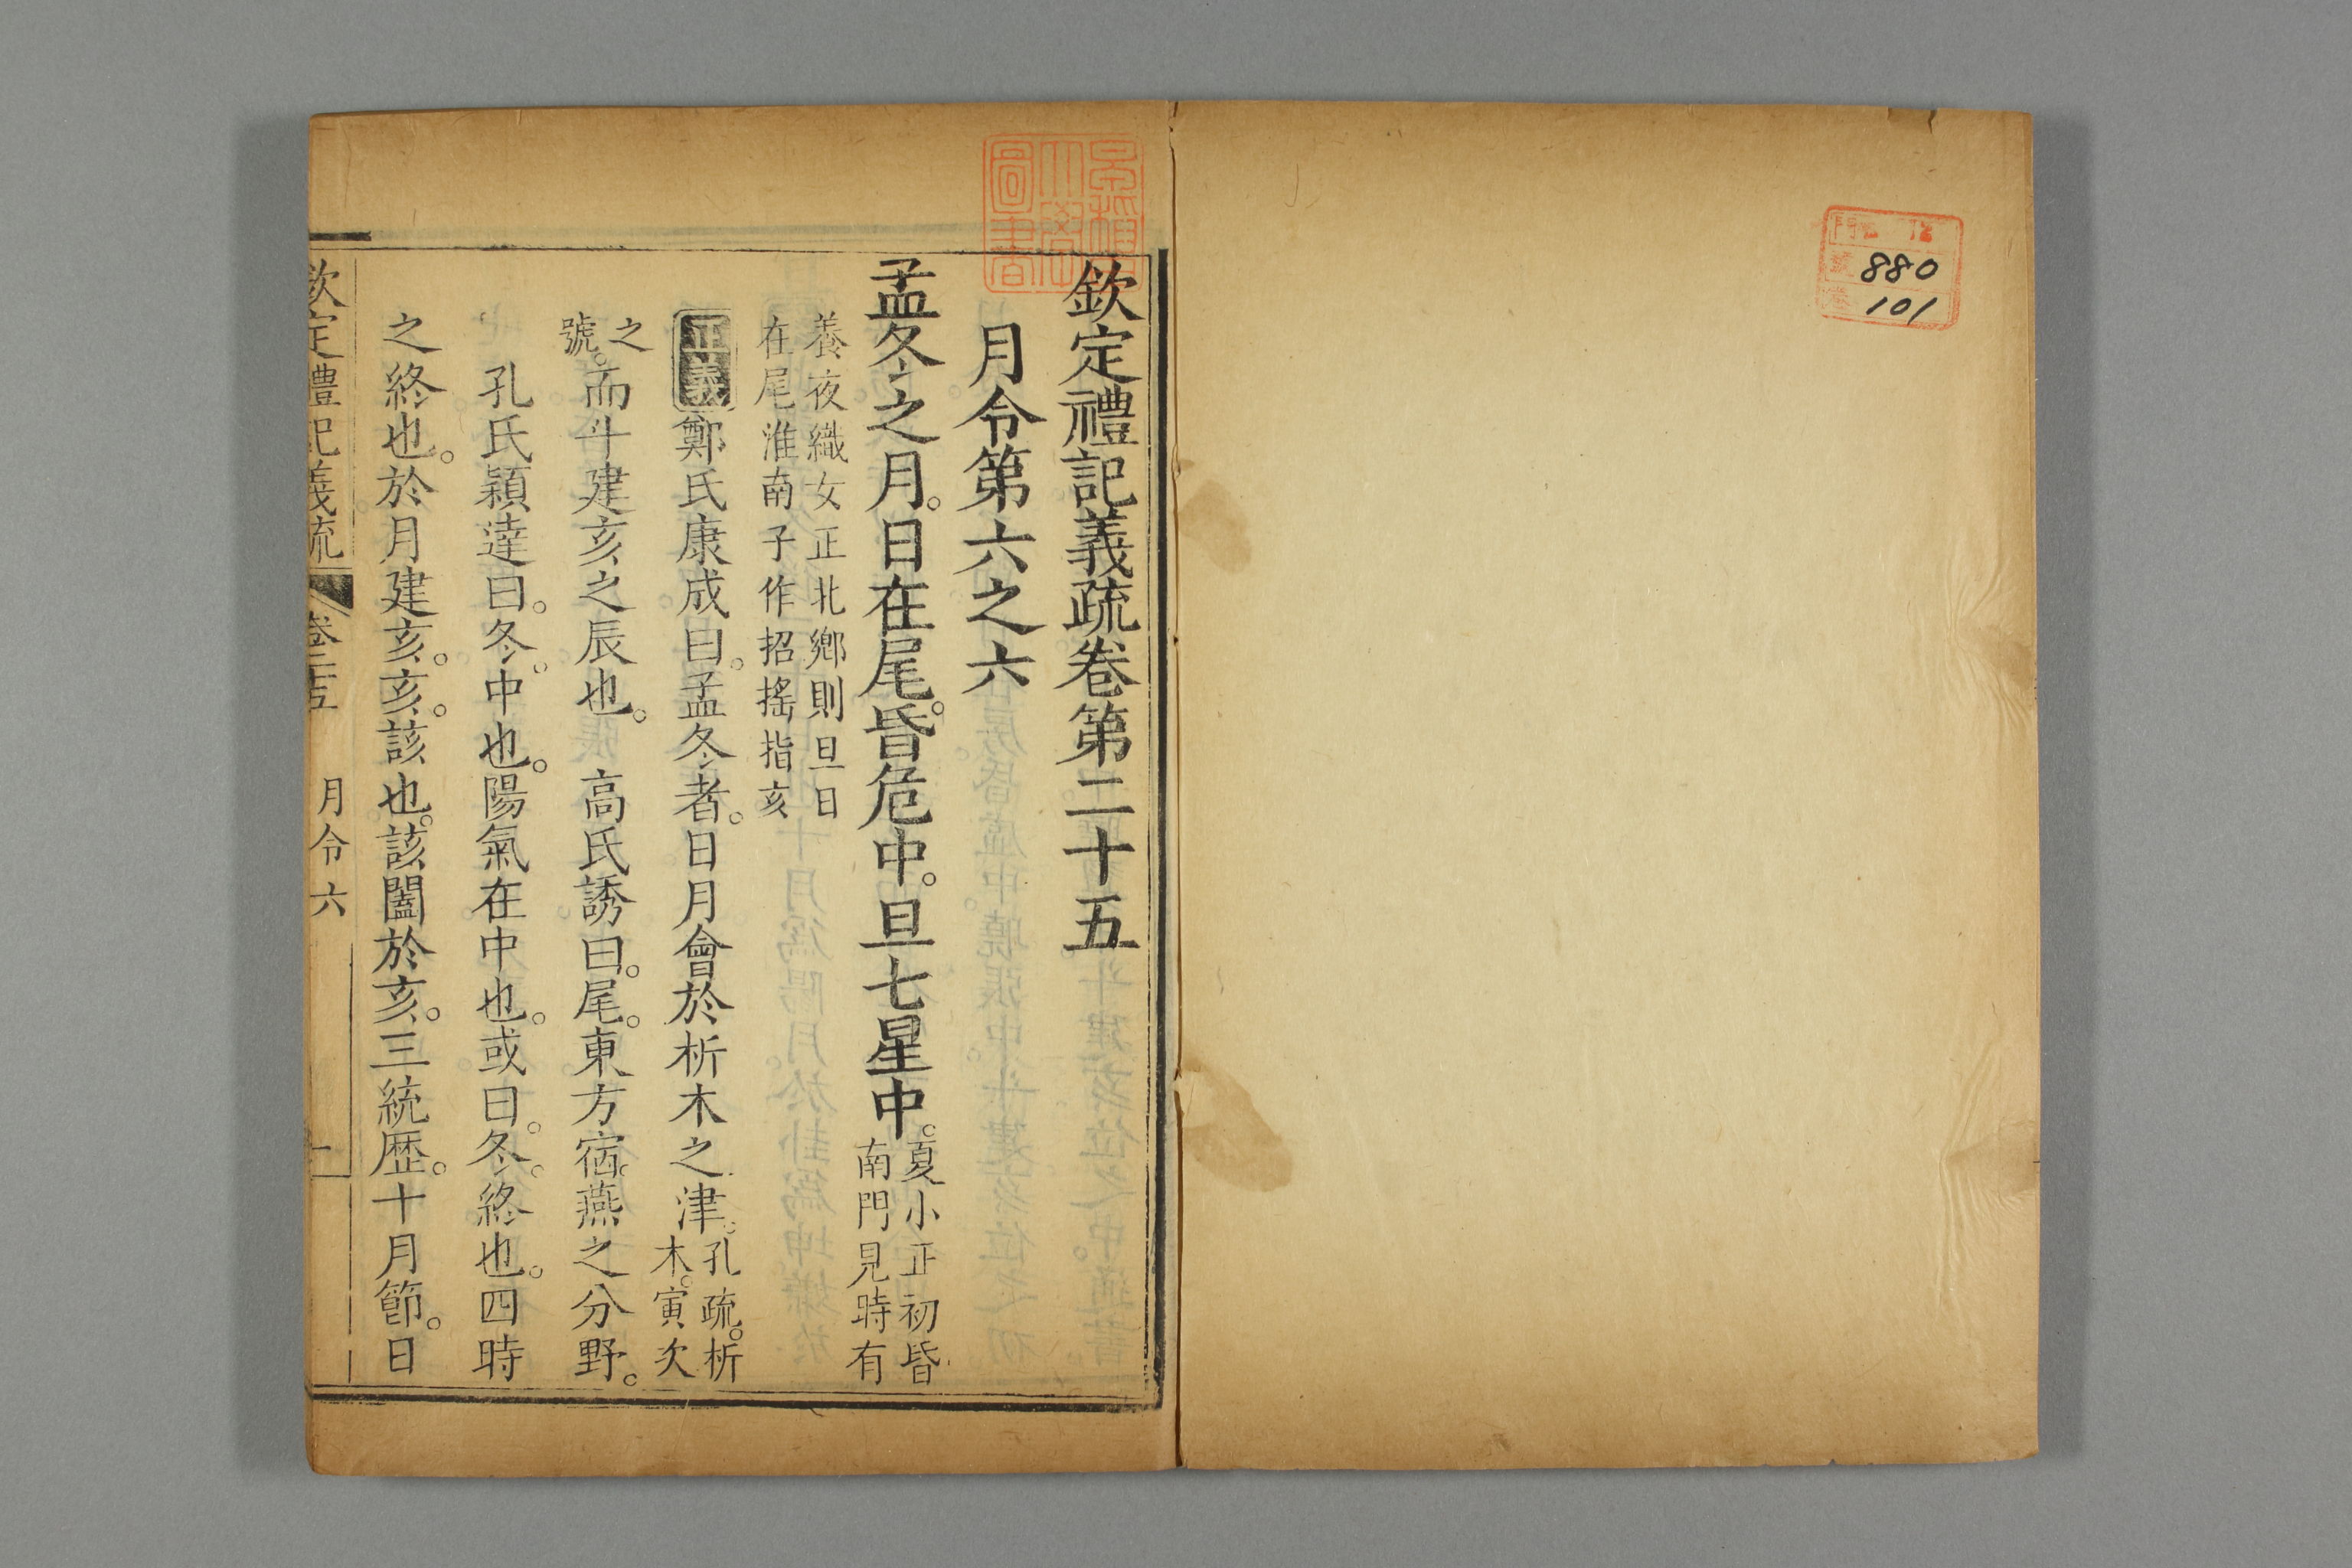 880
101
欽定禮記義疏卷第二十五
月令第六之六
孟冬之月。日在尾。昏危中。旦七星中。夏小正初昏
南門見時有
養夜織女正北鄉則旦日
在尾淮南子作招搖指亥
正義鄭氏康成曰。孟冬者。日月會於析木之津。孔疏。析
木。寅次
之
號。而斗建亥之辰也。 高氏誘曰。尾。東方宿。燕之分野。
孔氏穎達曰。冬。中也。陽氣在中也。或曰。冬。終也。四時
之終也。於月建亥。亥。該也。該闔於亥。三統歴。十月節。日
欽定禮記義疏 卷二十五 月令六 一